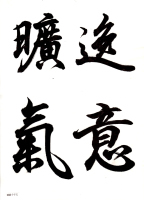 逸意
曠氣